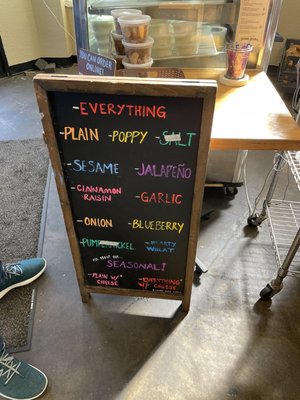 YOU CAN ORDER
ONLINE!
-EVERYTHING
-PLAIN -POPPY -SALT
-SESAME -JALAPEÑO
-CINNAMON
RAISIN -GARLIC
-ONION -BLUEBERRY
-PUMPERNICKEL -HEARTY
WHEAT
SEASONAL!
-PLAIN W/
CHEESE
-EVERYTHING
W/ CHEESE